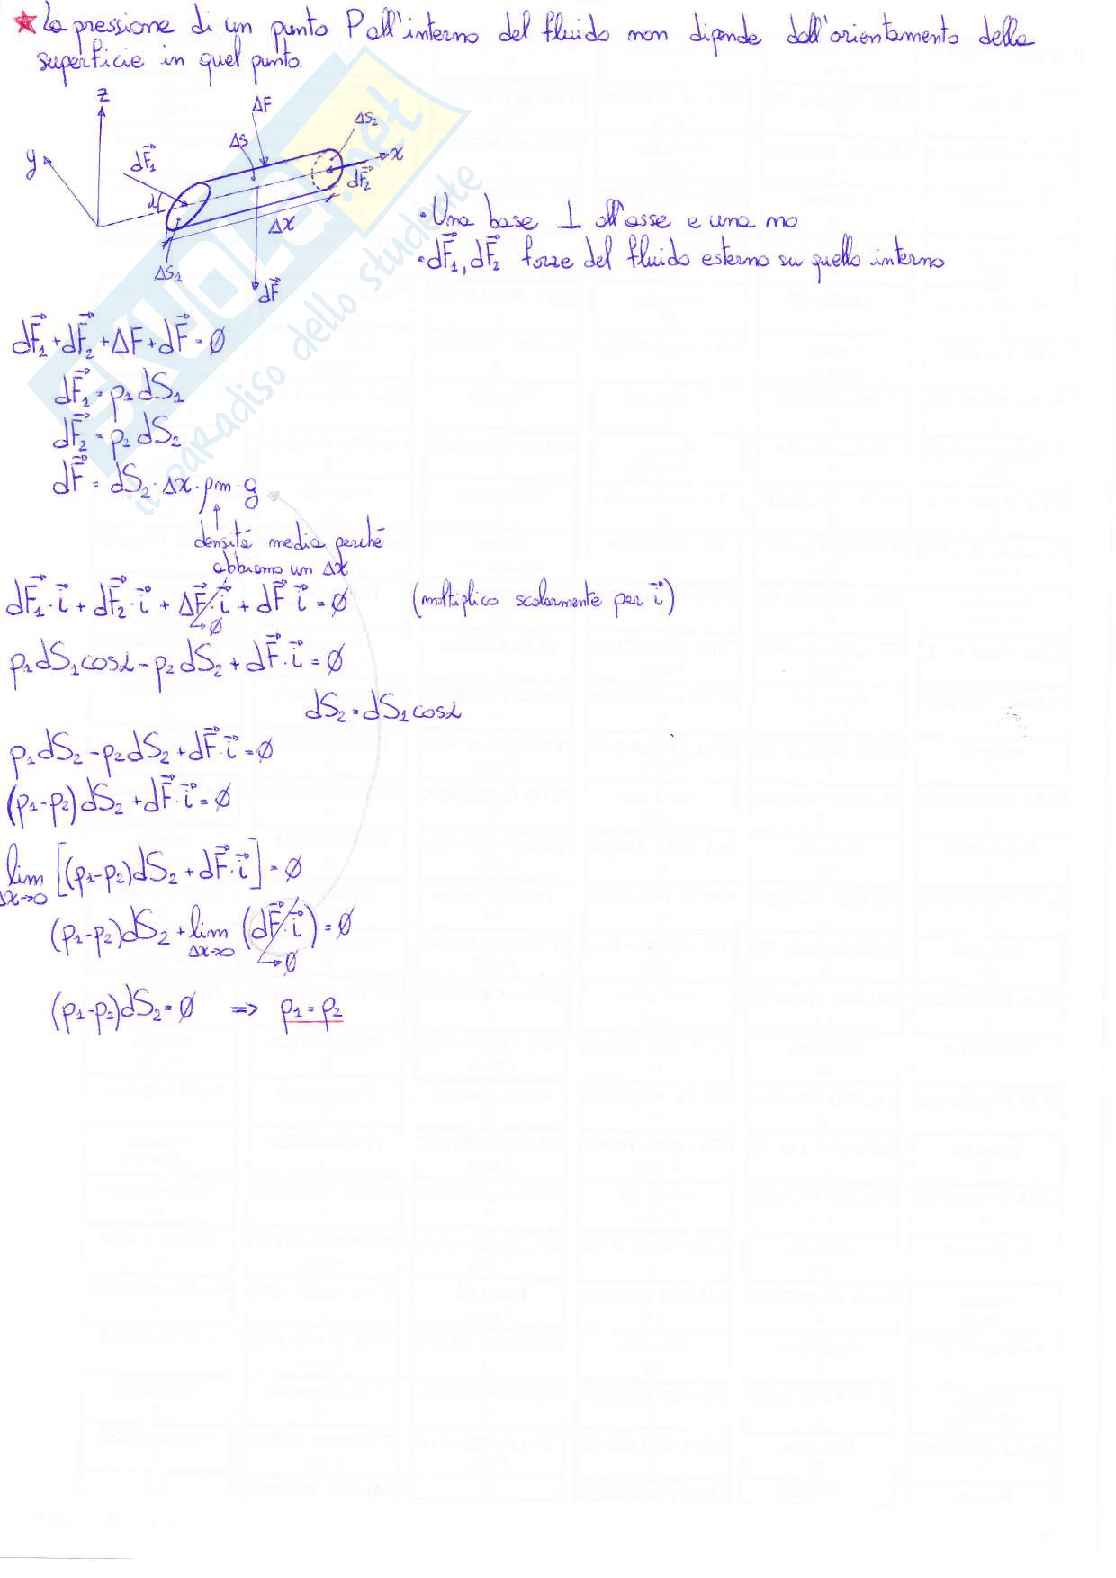 ★ La pressione di un punto P all'interno del fluido non dipende dall'orientamento della
superficie in quel punto
z
ΔF
ΔS₂
ΔS
x
y
dF⃗₁
dF⃗₂
α
Δx
ΔS₂
dF⃗
• Una base ⊥ all'asse e una no
• dF⃗₁, dF⃗₂ forze del fluido esterno su quello interno
SKUOLA.net
il paradiso dello studente
dF⃗₁ + dF⃗₂ + ΔF + dF⃗ = ∅
dF⃗₁ = p₁ dS₁
dF⃗₂ = p₂ dS₂
dF⃗ = dS₂ · Δx · ρm · g
densità media perché
abbiamo un Δx
dF⃗₁ · i⃗ + dF⃗₂ · i⃗ + ΔF⃗ · i⃗ + dF⃗ · i⃗ = ∅ (moltiplico scalarmente per i⃗)
→ ∅
p₁ dS₁ cosα - p₂ dS₂ + dF⃗ · i⃗ = ∅
dS₂ = dS₁ cosα
p₁ dS₂ - p₂ dS₂ + dF⃗ · i⃗ = ∅
(p₁ - p₂) dS₂ + dF⃗ · i⃗ = ∅
lim [(p₁ - p₂) dS₂ + dF⃗ · i⃗] = ∅
Δx→0
(p₁ - p₂) dS₂ + lim (dF⃗ · i⃗) = ∅
Δx→0 → ∅
(p₁ - p₂) dS₂ = ∅ => p₁ = p₂